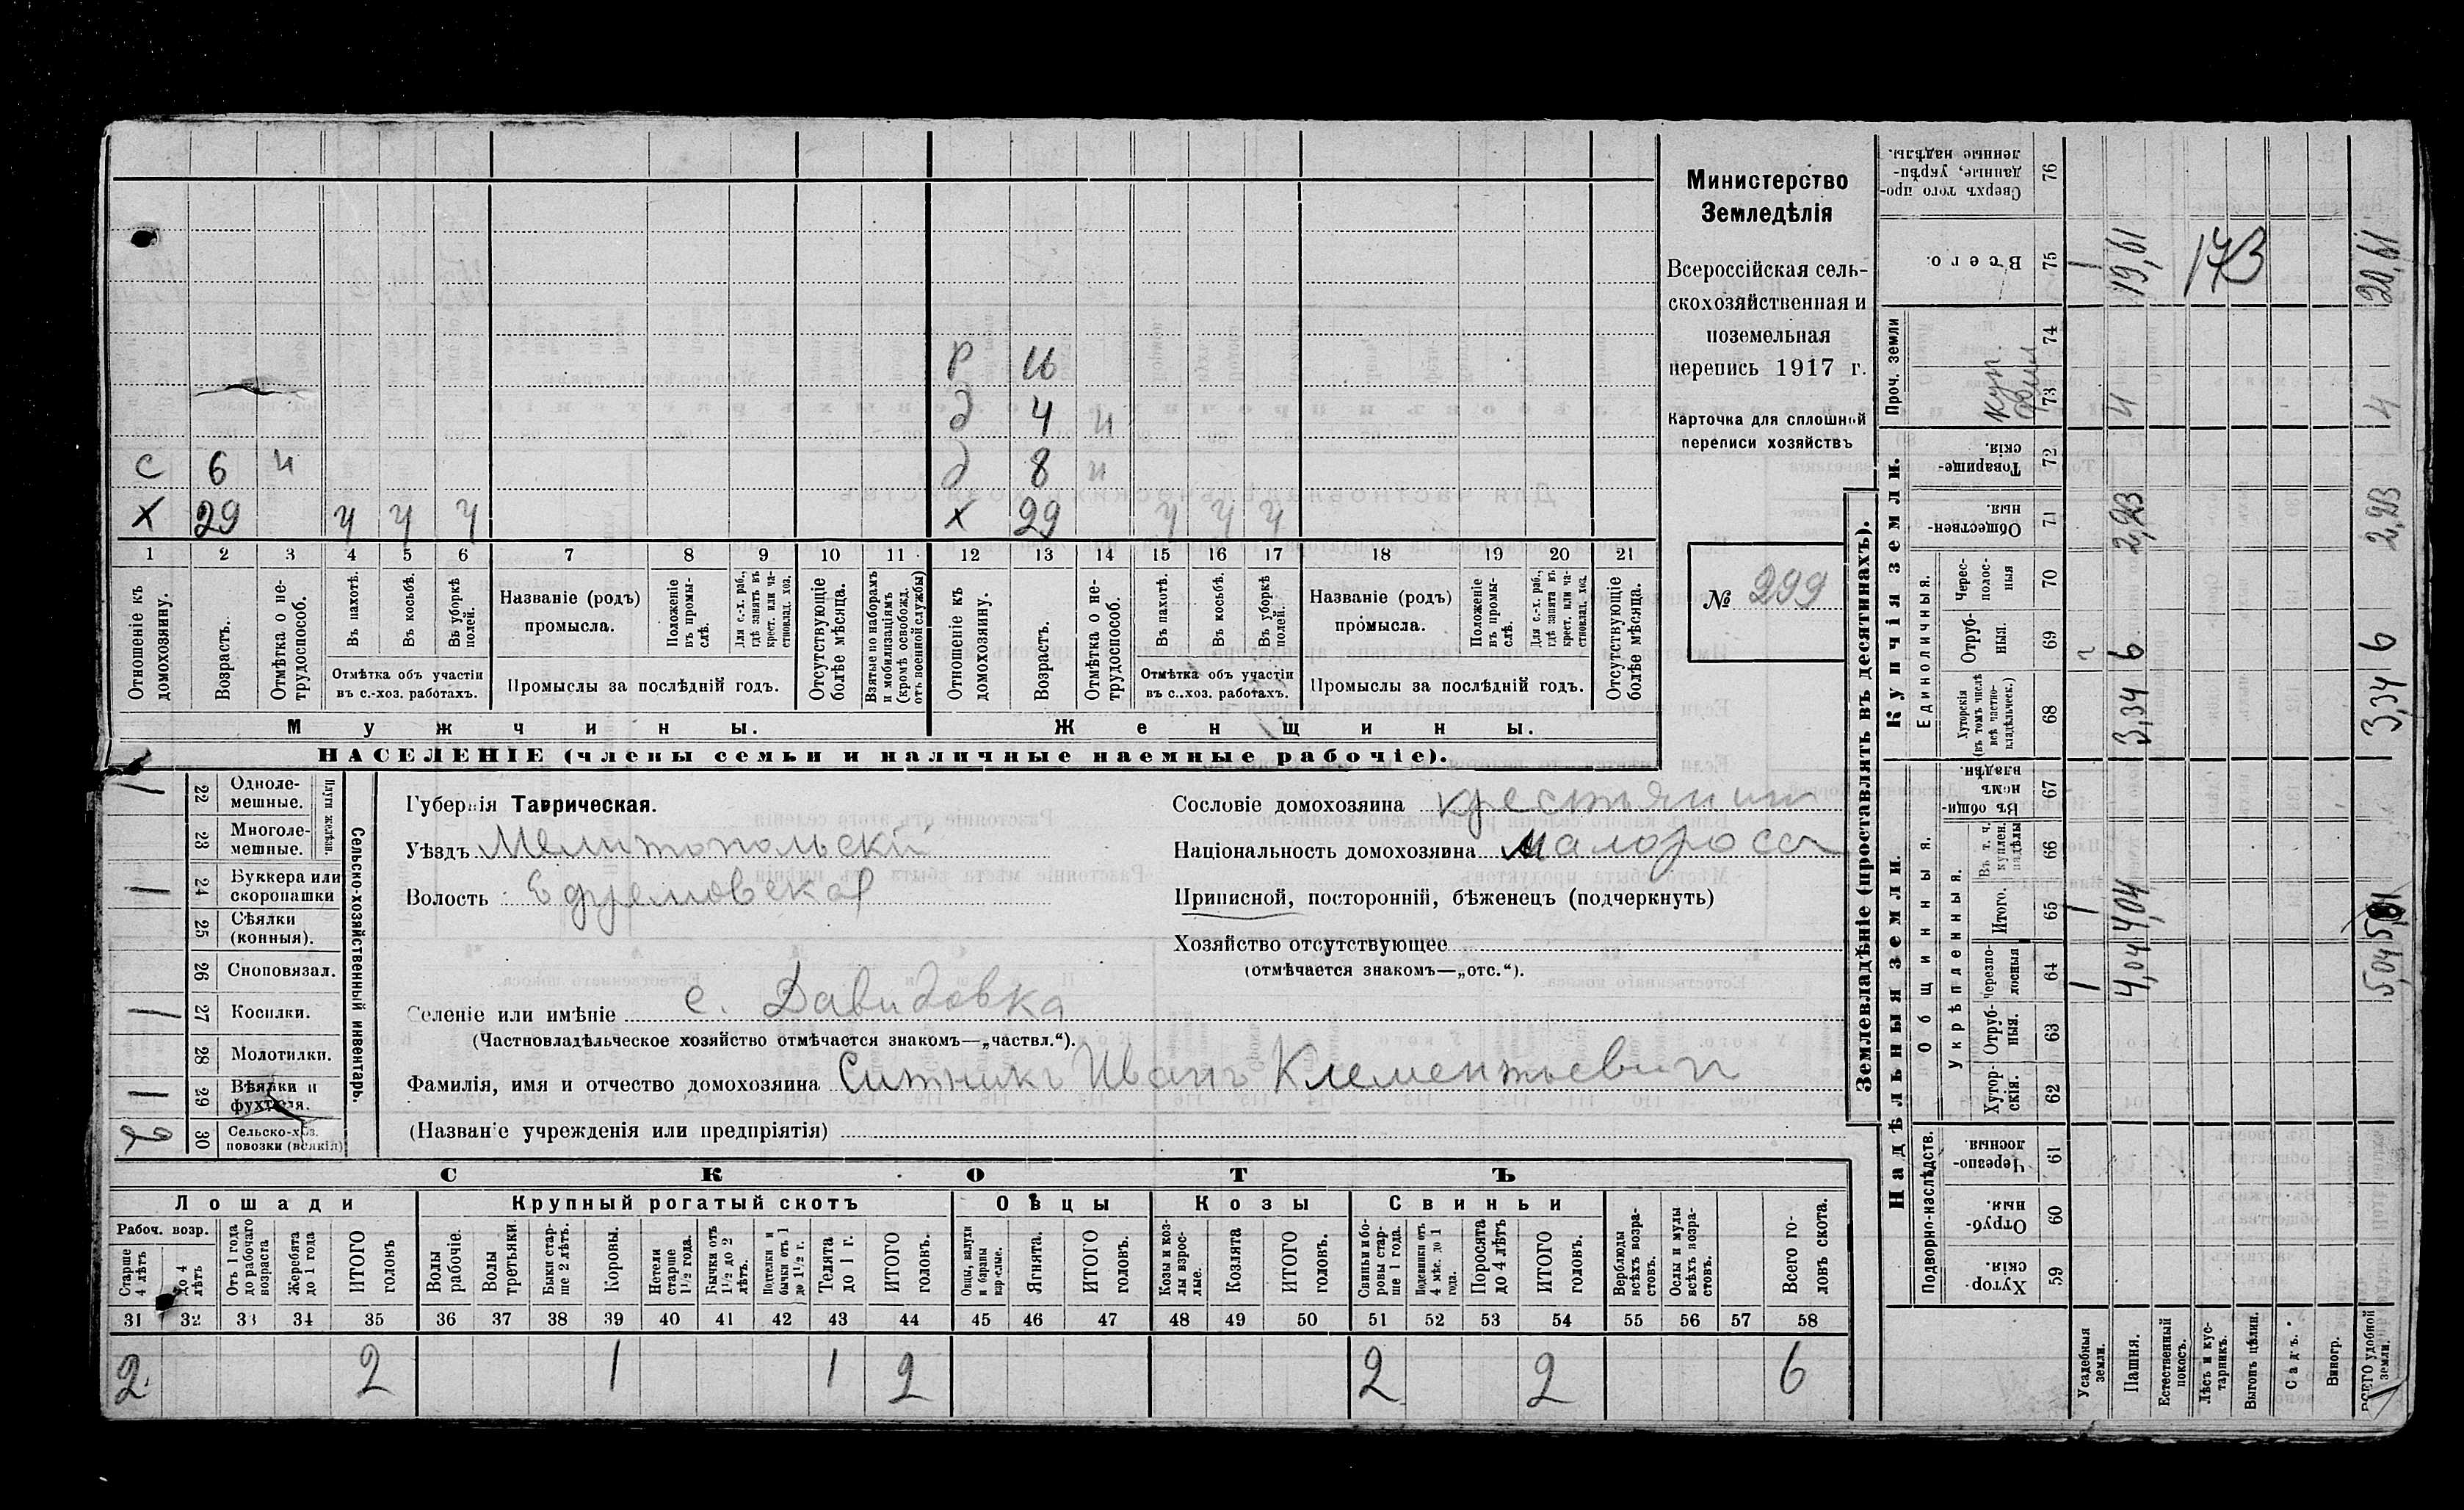 Министерство
Земледѣлія
Всероссійская сель-
скохозяйственная и
поземельная
перепись 1917 г.
Карточка для сплошной
переписи хозяйствъ
№ 299
Р 16
д 4 н
С 6 н д 8 н
Х 29 ч ч ч Х 29 ч ч ч
1 2 3 4 5 6 7 8 9 10 11 12 13 14 15 16 17 18 19 20 21
Отношеніе къ домохозяину.
Возрастъ.
Отмѣтка о не-трудоспособ.
Въ пахотѣ.
Въ косьбѣ.
Въ уборкѣ полей.
Отмѣтка объ участіи
въ с.-хоз. работахъ.
Названіе (родъ)
промысла.
Положеніе въ промы-слѣ.
Для с.-х. раб., гдѣ занятъ въ крест. или ча-стновлад. хоз.
Промыслы за послѣдній годъ.
Отсутствующіе болѣе мѣсяца.
Взятые по наборамъ и мобилизаціямъ (кромѣ освобожд. отъ военной службы)
Отношеніе къ домохозяину.
Возрастъ.
Отмѣтка о не-трудоспособ.
Въ пахотѣ.
Въ косьбѣ.
Въ уборкѣ полей.
Отмѣтка объ участіи
въ с.-хоз. работахъ.
Названіе (родъ)
промысла.
Положеніе въ промы-слѣ.
Для с.-х. раб., гдѣ занята въ крест. или ча-стновлад. хоз.
Промыслы за послѣдній годъ.
Отсутствующіе болѣе мѣсяца.
Мужчины. Женщины.
НАСЕЛЕНІЕ (члены семьи и наличные наемные рабочіе).
Сельско-хозяйственный инвентарь.
Плуги желѣзн.
1 22 Одноле-мешные.
23 Многоле-мешные.
1 24 Буккера или скоропашки
25 Сѣялки (конныя).
26 Сноповязал.
1 27 Косилки.
28 Молотилки.
1 29 Вѣялки и
30 Сельско-хоз. повозки (всякія)
Губернія Таврическая.
Уѣздъ Мелитопольскій
Волость Ефремовская
Сословіе домохозяина крестьянин
Національность домохозяина малоросс
Приписной, посторонній, бѣженецъ (подчеркнуть)
Хозяйство отсутствующее
(отмѣчается знакомъ—„отс.“).
Селеніе или имѣніе с. Давидовка
(Частновладѣльческое хозяйство отмѣчается знакомъ—„частвл.“).
Фамилія, имя и отчество домохозяина Ситникъ Иванъ Клементьевич
(Названіе учрежденія или предпріятія)
СКОТЪ
Лошади Крупный рогатый скотъ Овцы Козы Свиньи
Рабоч. возр.
Старше 4 лѣтъ
до 4 лѣтъ
Отъ 1 года до рабочаго возраста
Жеребята до 1 года
ИТОГО головъ
Волы рабочіе.
Волы третьяки.
Быки стар-ше 2 лѣтъ.
Коровы.
Нетели старше 1½ года.
Бычки отъ 1½ до 2 лѣтъ.
Подтелки и бычки отъ 1 до 1½ г.
Телята до 1 г.
ИТОГО головъ.
Овцы, валухи и бараны взрослые.
Ягнята.
ИТОГО головъ.
Козы и коз-лы взрос-лые.
Козлята
ИТОГО головъ.
Свиньи и бо-ровы стар-ше 1 года.
Подсвинки отъ 4 мѣс. до 1 года.
Поросята до 4 лѣтъ
ИТОГО головъ.
Верблюды всѣхъ возра-стовъ.
Ослы и мулы всѣхъ возра-стовъ.
Всего го-ловъ скота.
31 32 33 34 35 36 37 38 39 40 41 42 43 44 45 46 47 48 49 50 51 52 53 54 55 56 57 58
2 2 1 1 2 2 2 6
Землевладѣніе (проставлять въ десятинахъ).
Надѣльныя земли.
Купчія земли.
Проч. земли
Подворно-наслѣдств.
Общинныя.
Укрѣпленныя.
Единоличныя.
Хутор-скія. 59
Отруб-ныя. 60
Черезпо-лосныя. 61
Хутор-скія. 62
Отруб-ныя. 63
Черезпо-лосныя 64
Итого. 65
Въ т. ч. куплен. надѣлы 66
Въ общи-номъ владѣн. 67
Хуторскія (въ томъ числѣ всѣ частно-владѣльческ.) 68
Отруб-ныя. 69
Черес-полос-ныя 70
Обществен-ныя. 71
Товарище-скія. 72
73
74
Всего. 75
Сверхъ того про-данные, укрѣп-ленные надѣлы. 76
Усадебныя земли. 1 1 1
Пашня. 4,04 4,04 3,34 6 2,23 4 19,61
Естественный покосъ.
Лѣсъ и кус-тарникъ. 173
Выгонъ цѣлин.
Садъ.
Виногр.
ВСЕГО удобной земли. 5,04 3,34 6 2,23 4 20,61